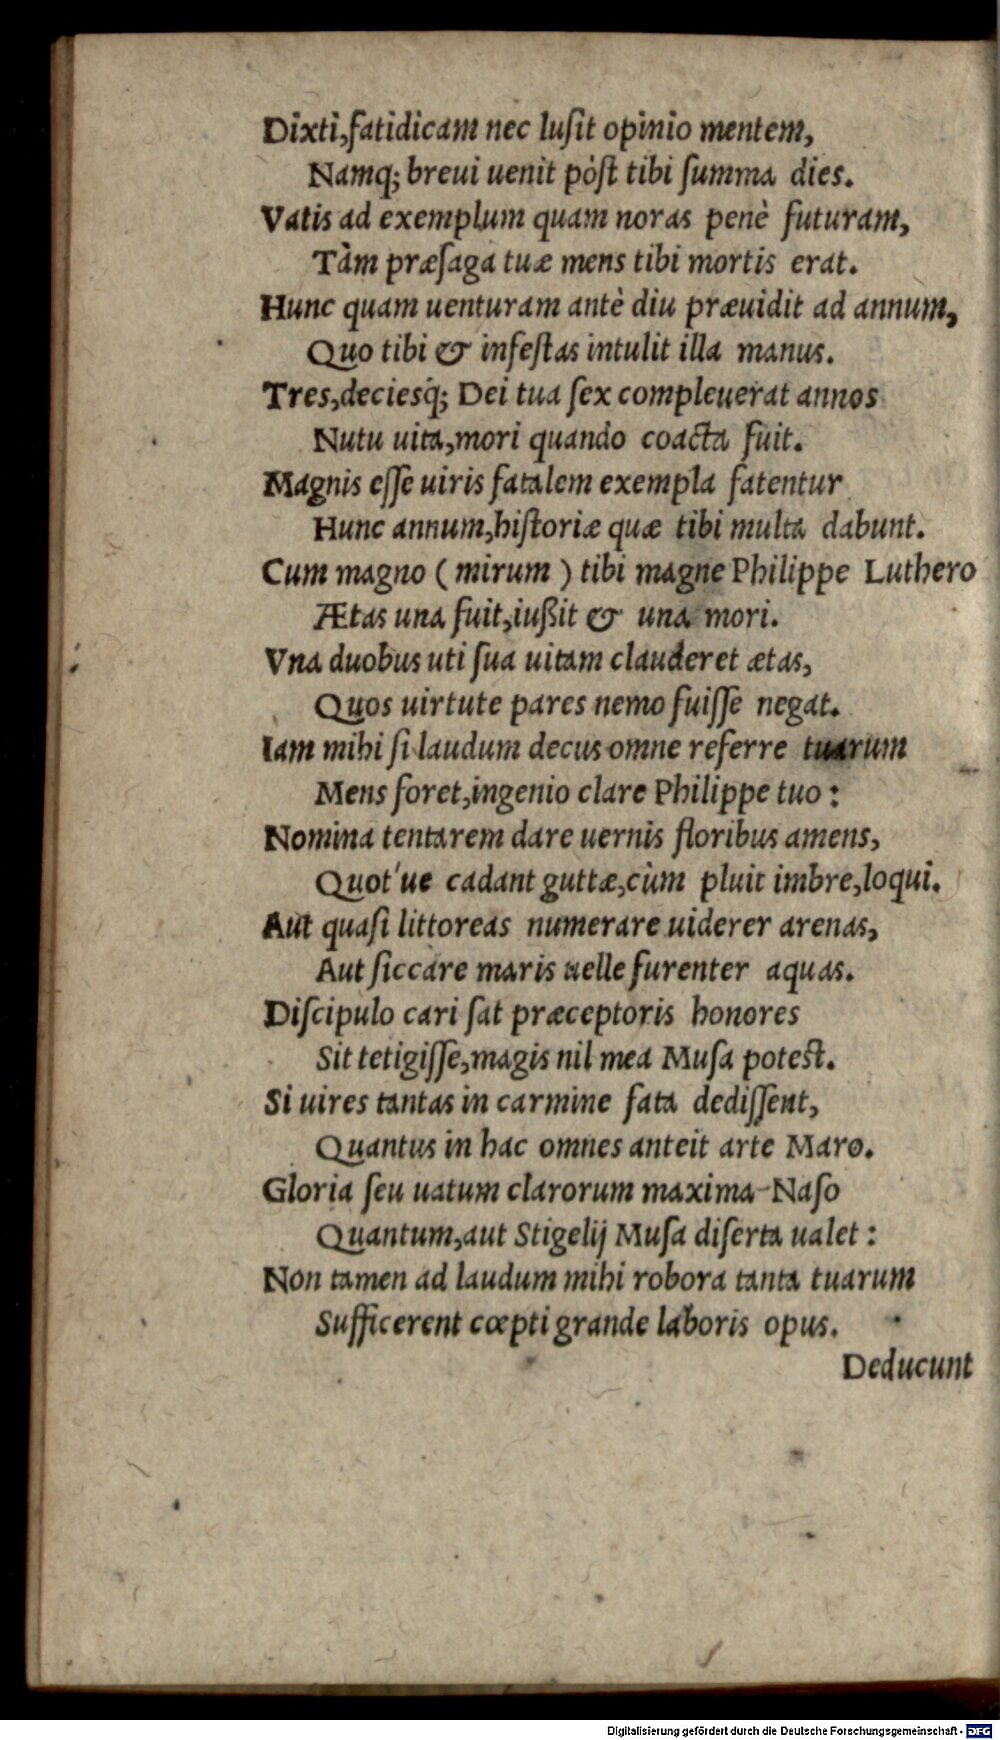 Dixti,fatidicam nec luſit opinio mentem,
Namq; breui uenit pòſt tibi ſumma dies.
Vatis ad exemplum quam noras penè futuram,
Tàm præſaga tuæ mens tibi mortis erat.
Hunc quam uenturam antè diu præuidit ad annum,
Quo tibi & infeſtas intulit illa manus.
Tres,deciesq́; Dei tua ſex compleuerat annos
Nutu uita,mori quando coacta fuit.
Magnis eſſe uiris fatalem exempla fatentur
Hunc annum,hiſtoriæ quæ tibi multa dabunt.
Cum magno ( mirum ) tibi magne Philippe Luthero
Ætas una fuit,iußit & una mori.
Vna duobus uti ſua uitam clauderet ætas,
Quos uirtute pares nemo fuiſſe negat.
Iam mihi ſi laudum decus omne referre tuarum
Mens foret,ingenio clare Philippe tuo :
Nomina tentarem dare uernis floribus amens,
Quot'ue cadant guttæ,cùm pluit imbre,loqui.
Aut quaſi littoreas numerare uiderer arenas,
Aut ſiccare maris uelle furenter aquas.
Diſcipulo cari ſat præceptoris honores
Sit tetigiſſe,magis nil mea Muſa poteſt.
Si uires tantas in carmine fata dediſſent,
Quantus in hac omnes anteit arte Maro.
Gloria ſeu uatum clarorum maxima Naſo
Quantum,aut Stigelij Muſa diſerta ualet :
Non tamen ad laudum mihi robora tanta tuarum
Sufficerent cœpti grande laboris opus.
Deducunt
Digitalisierung gefördert durch die Deutsche Forschungsgemeinschaft - DFG